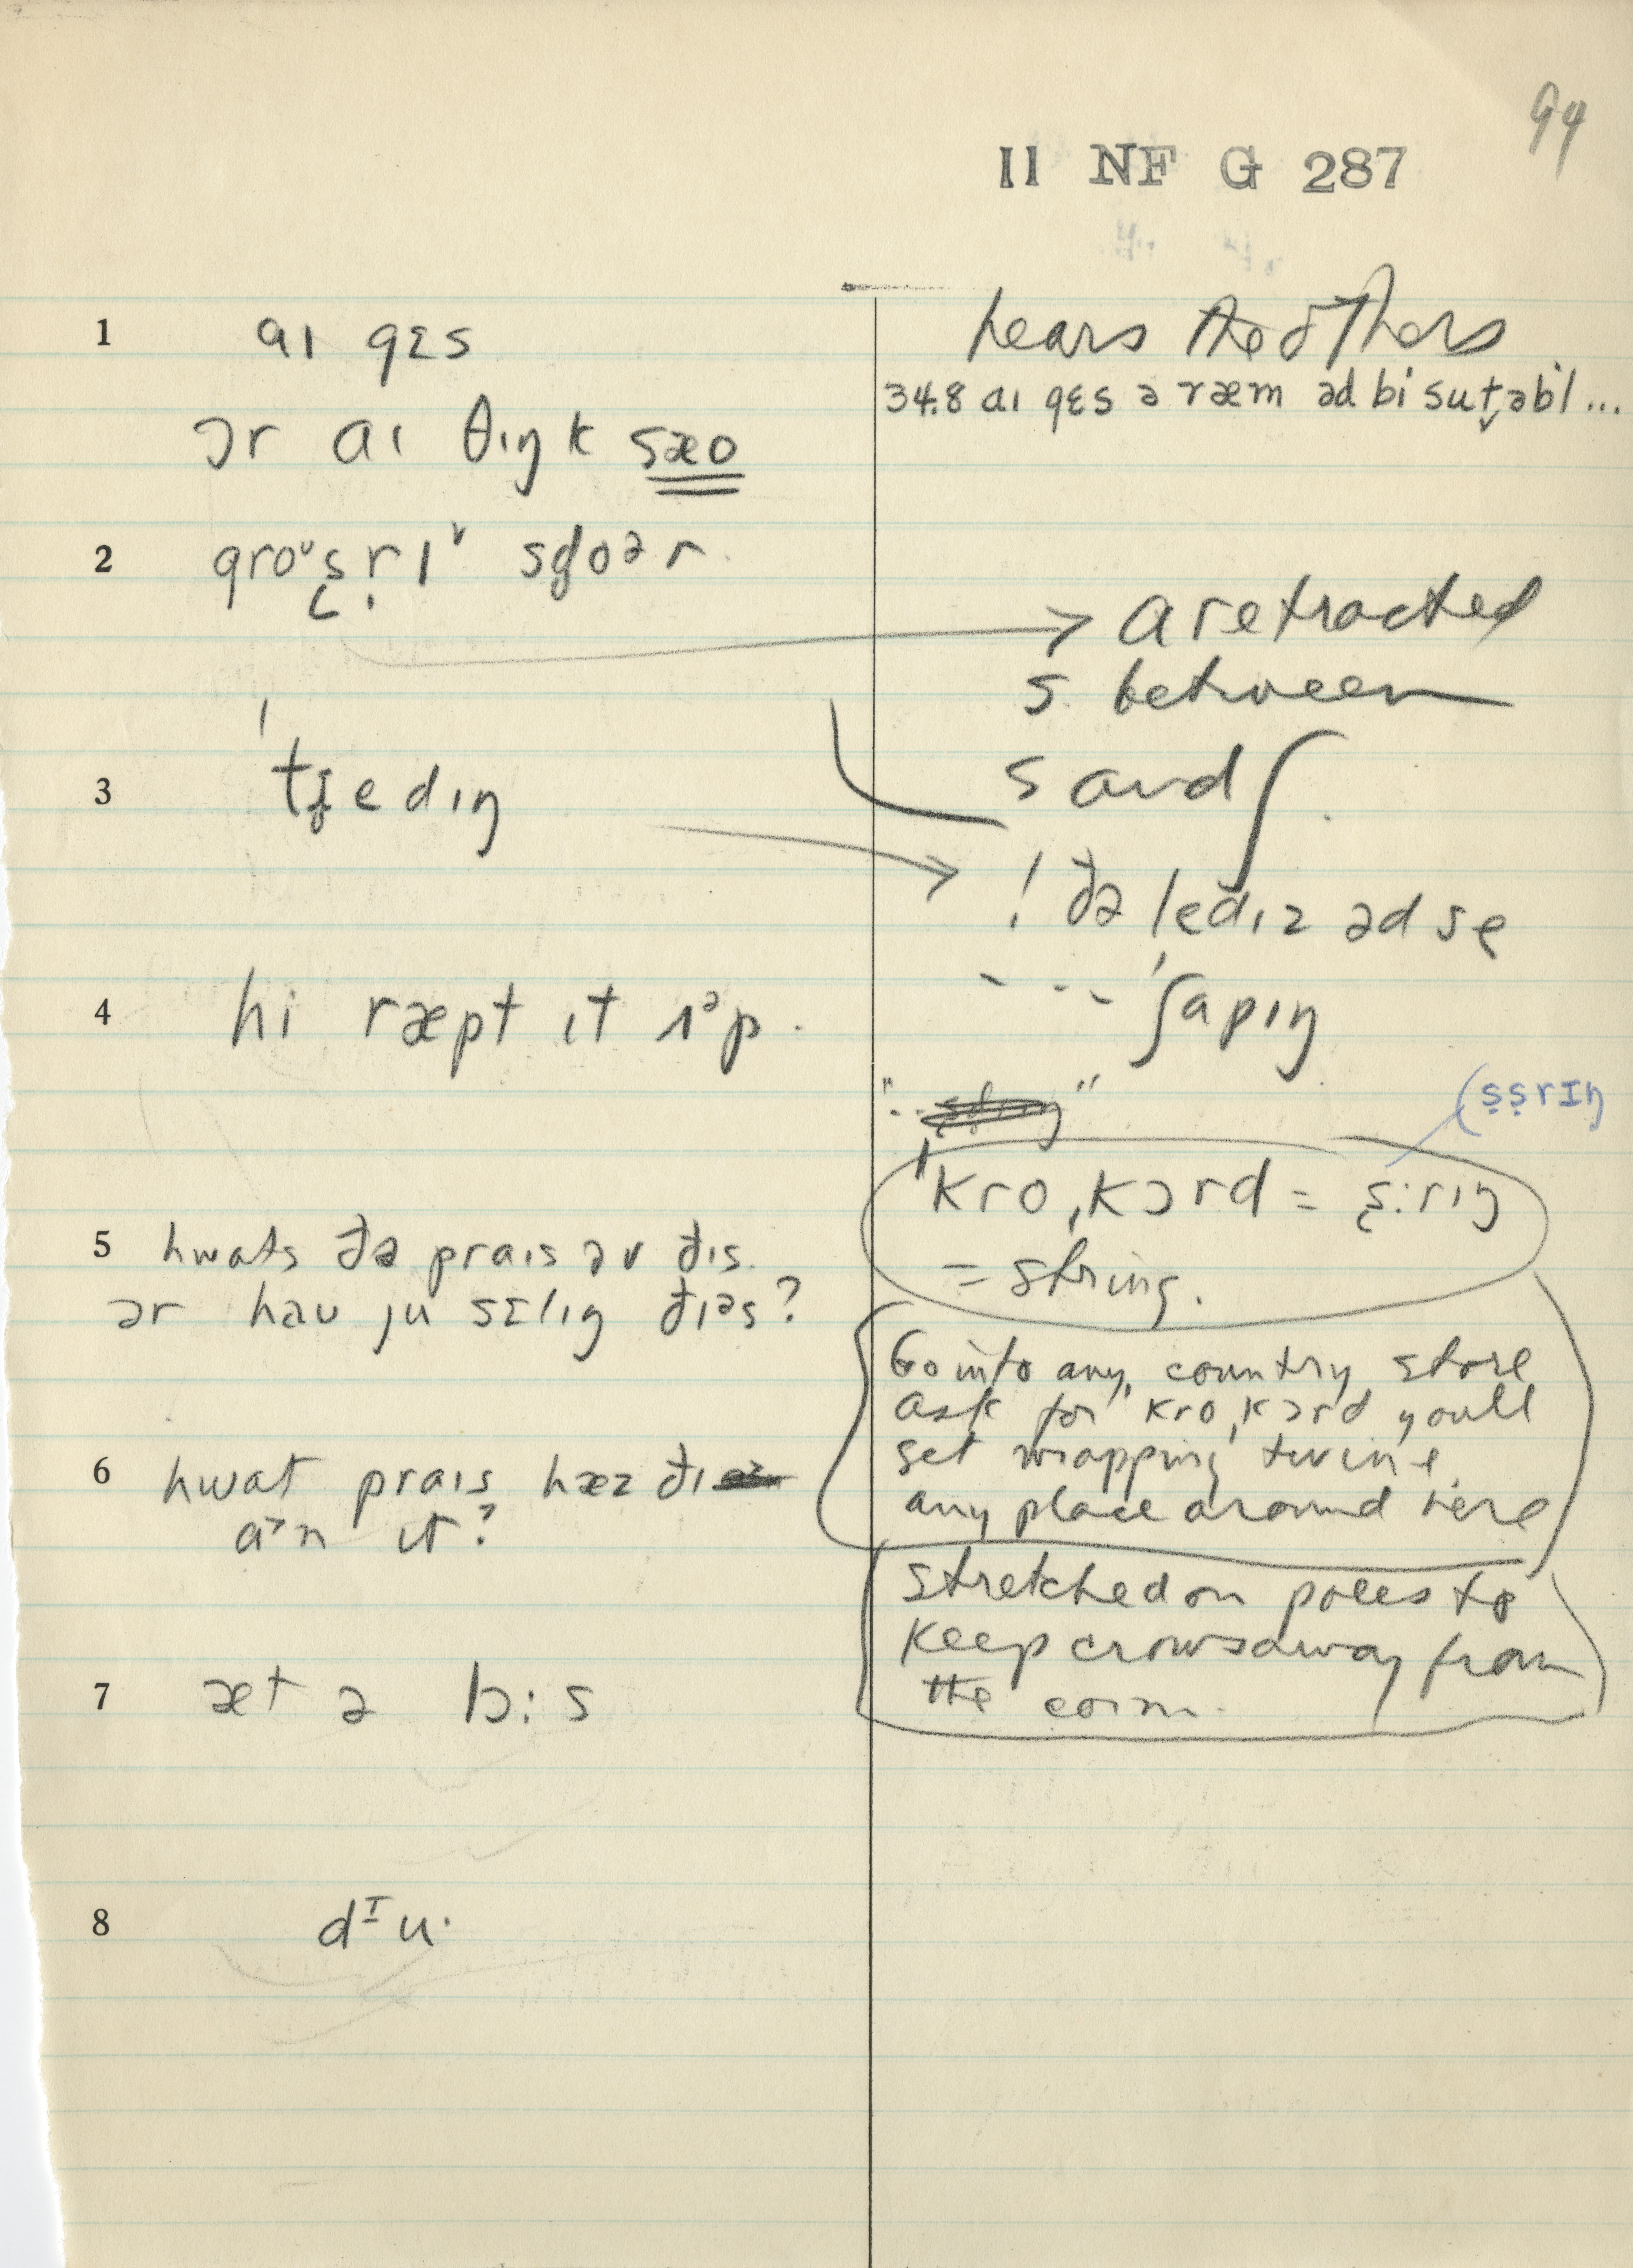 94
II NF G 287
1 aɪ gɛs
hears the others
34.8 aɪ gɛs ə ræm əd bi sutəbl ...
ɔr aɪ θɪŋk sæo
2 groʊsrɪ sdoər
a retracted
s between
s and ʃ
3 ˈtʃedɪŋ
! ðə ledɪz əd se
- - - ˈʃapɪŋ
4 hi ræpt ɪt ʌᵊp.
(ṣṣrɪŋ
ˈkro,kɔrd = ṣ:rɪŋ
= string.
5 hwats ðə praɪs əv ðɪs.
ər haʊ ju sɛlɪŋ ðɪəs?
Go into any country store
ask for ˈkro,kɔrd you'll
get wrapping twine.
any place around here
6 hwat praɪs hæz ðɪ
aˑn ɪt?
stretched on poles to
keep crows away from
the corn.
7 æt ə lɔ:s
8 dᶦu·